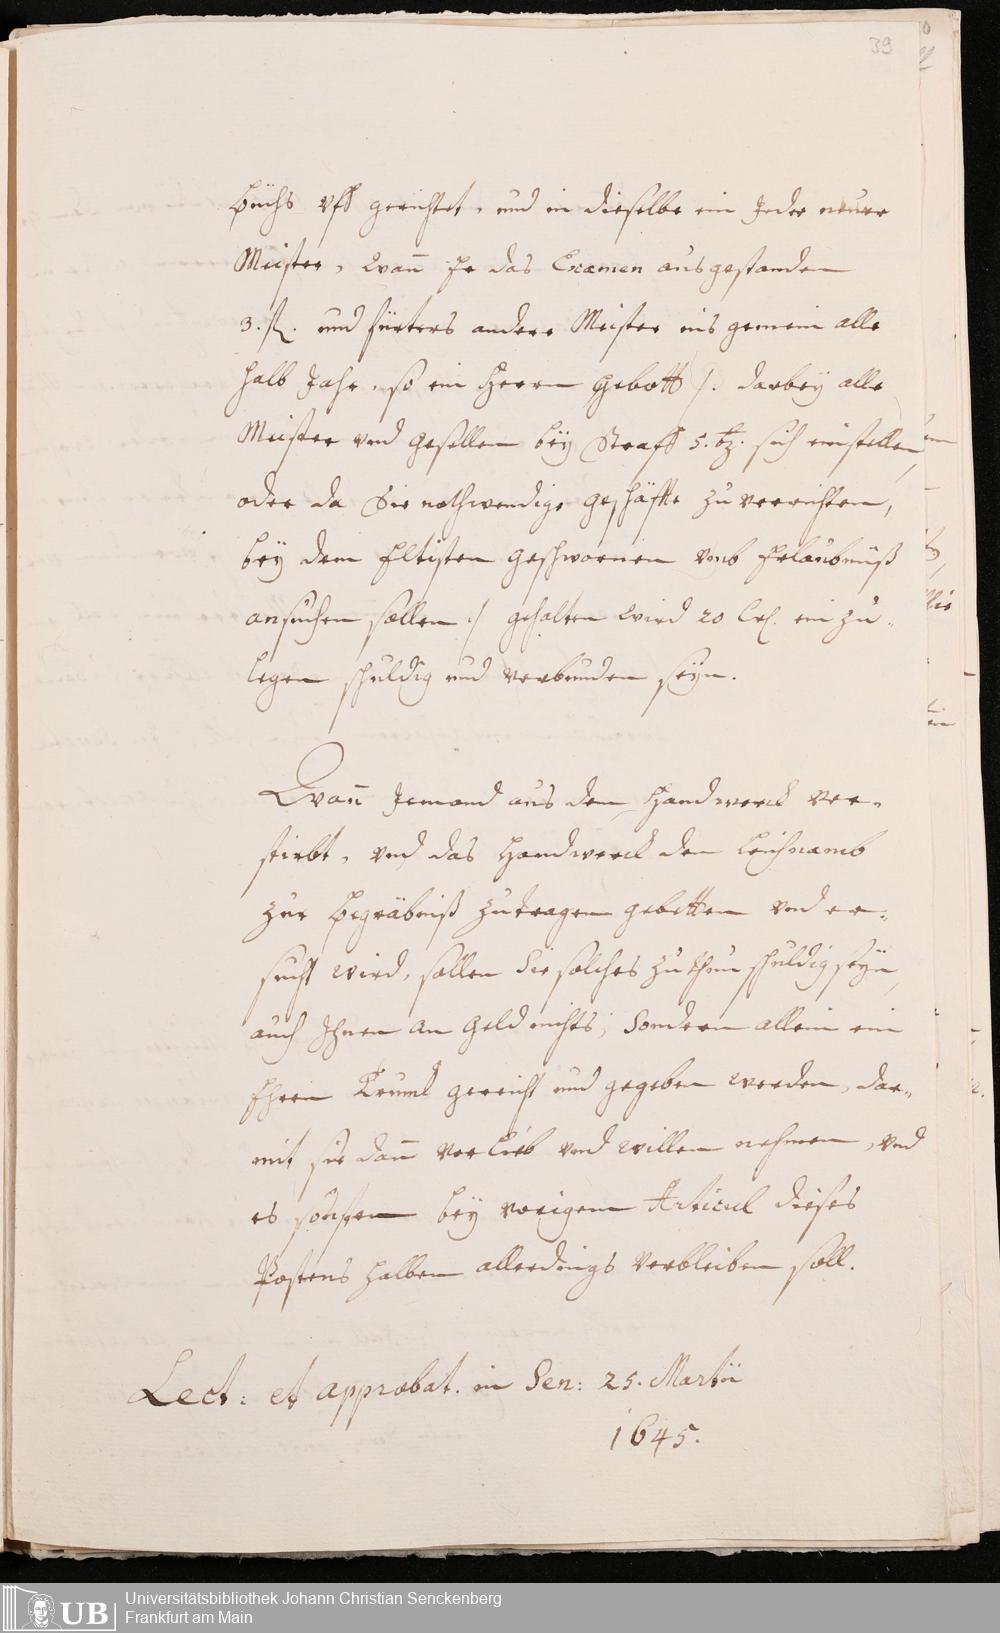 39
Büchs vff gerichtet, und in dieselbe ein Jeder neuer
Meister, Wañ Er das Examen ausgestanden
3. fl. und fürters andere Meister ins gemein alle
halb Jahr, so ein Herrn Gebott /. darbey alle
Meister vnd Gesellen bey Straff 5. bz. sich einstellen,
oder da Sie nothwendige Geschäffte zu verrichten,
bey dem Eltisten Geschwornen vmb Erlaubnüß
ansuchen sollen ./ gehalten wird 20 Cr. ein zu-
legen schuldig und verbunden seyn.
Wañ Jemand aus dem Handwerck ver-
stirbt, vnd das Handwerck den Leichnamb
zur Begräbniß zutragen gebetten vnd er-
sucht wird, sollen Sie solches zu thun schuldig seyn,
auch Ihnen an Geld nichts, sondern allein ein
Ehren Trunck gereicht und gegeben werden, dar-
mit sie dañ verlieb vnd willen nehmen, vnd
es sonsten bey vorigem Articul dieses
Postens halben allerdings verbleiben soll.
Lect: et approbat. in Sen: 25. Martii
1645.
Universitätsbibliothek Johann Christian Senckenberg
Frankfurt am Main
UB